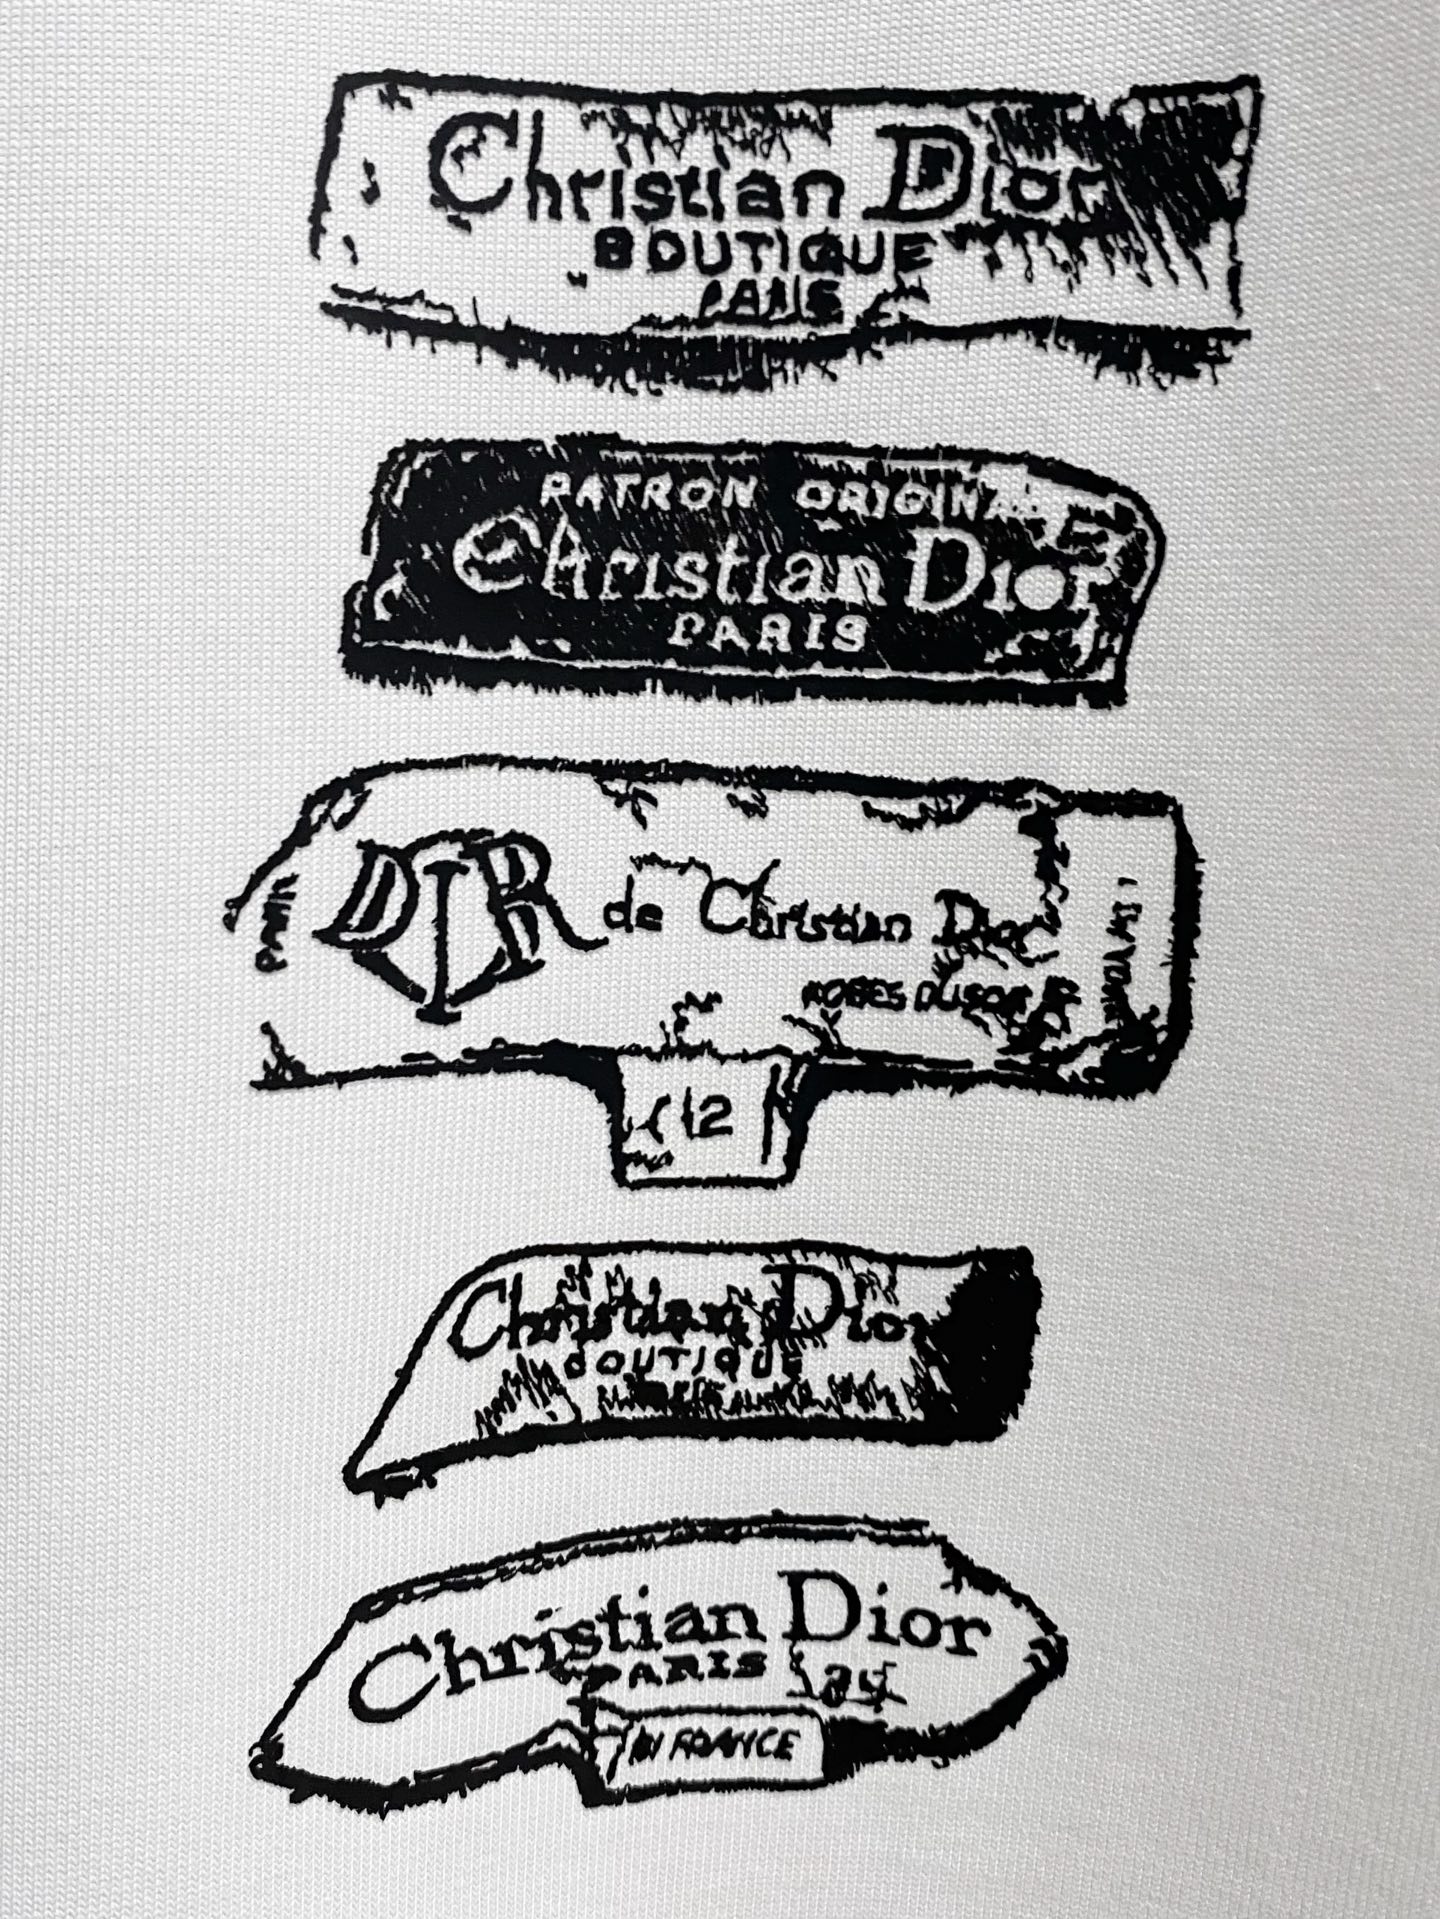 Christian Dior
BOUTIQUE
PARIS
PATRON ORIGINAL
Christian Dior
PARIS
DIOR de Christian Dior
12
Christian Dior
BOUTIQUE
Christian Dior
PARIS
IN FRANCE